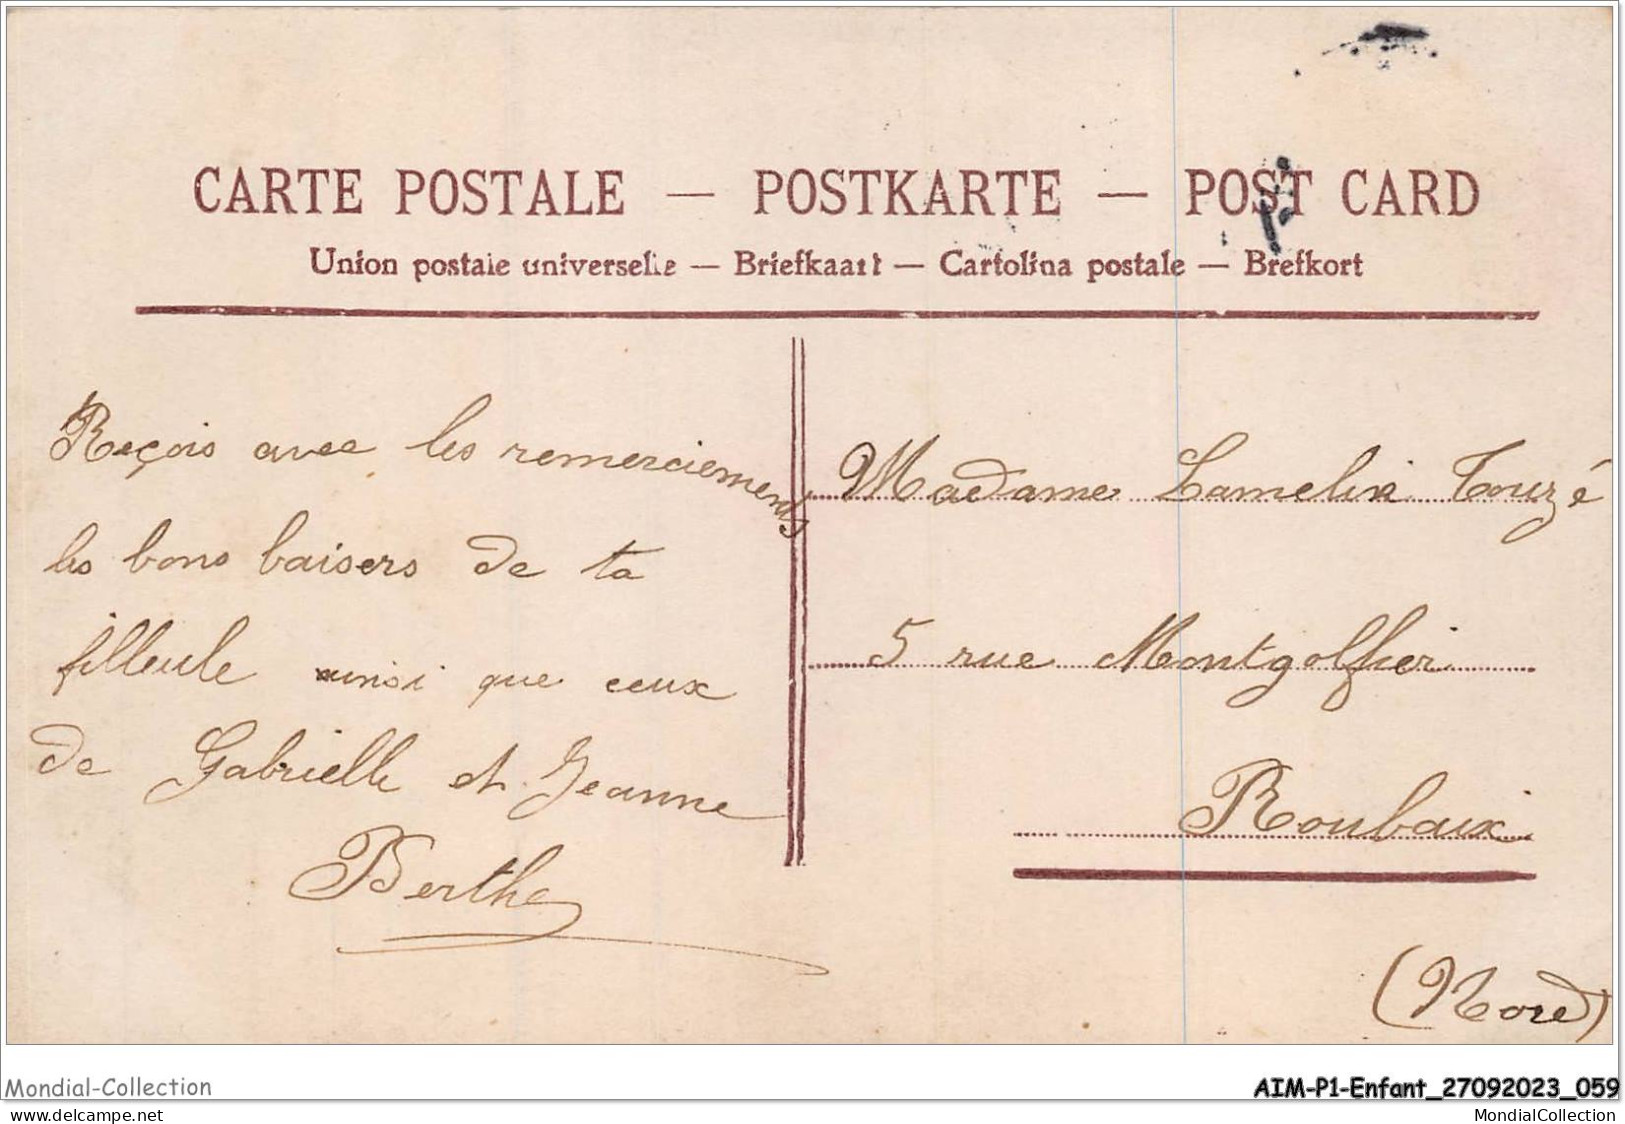 CARTE POSTALE — POSTKARTE — POST CARD
Union postale universelle — Briefkaart — Cartolina postale — Brefkort
Reçois avec les remerciements
les bons baisers de ta
filleule ainsi que ceux
de Gabrielle et Jeanne
Berthe
Madame Lamelin Touzé
5 rue Montgolfier
Roubaix
(Nord)
Mondial-Collection
AIM-P1-Enfant_27092023_059
www.delcampe.net
MondialCollection